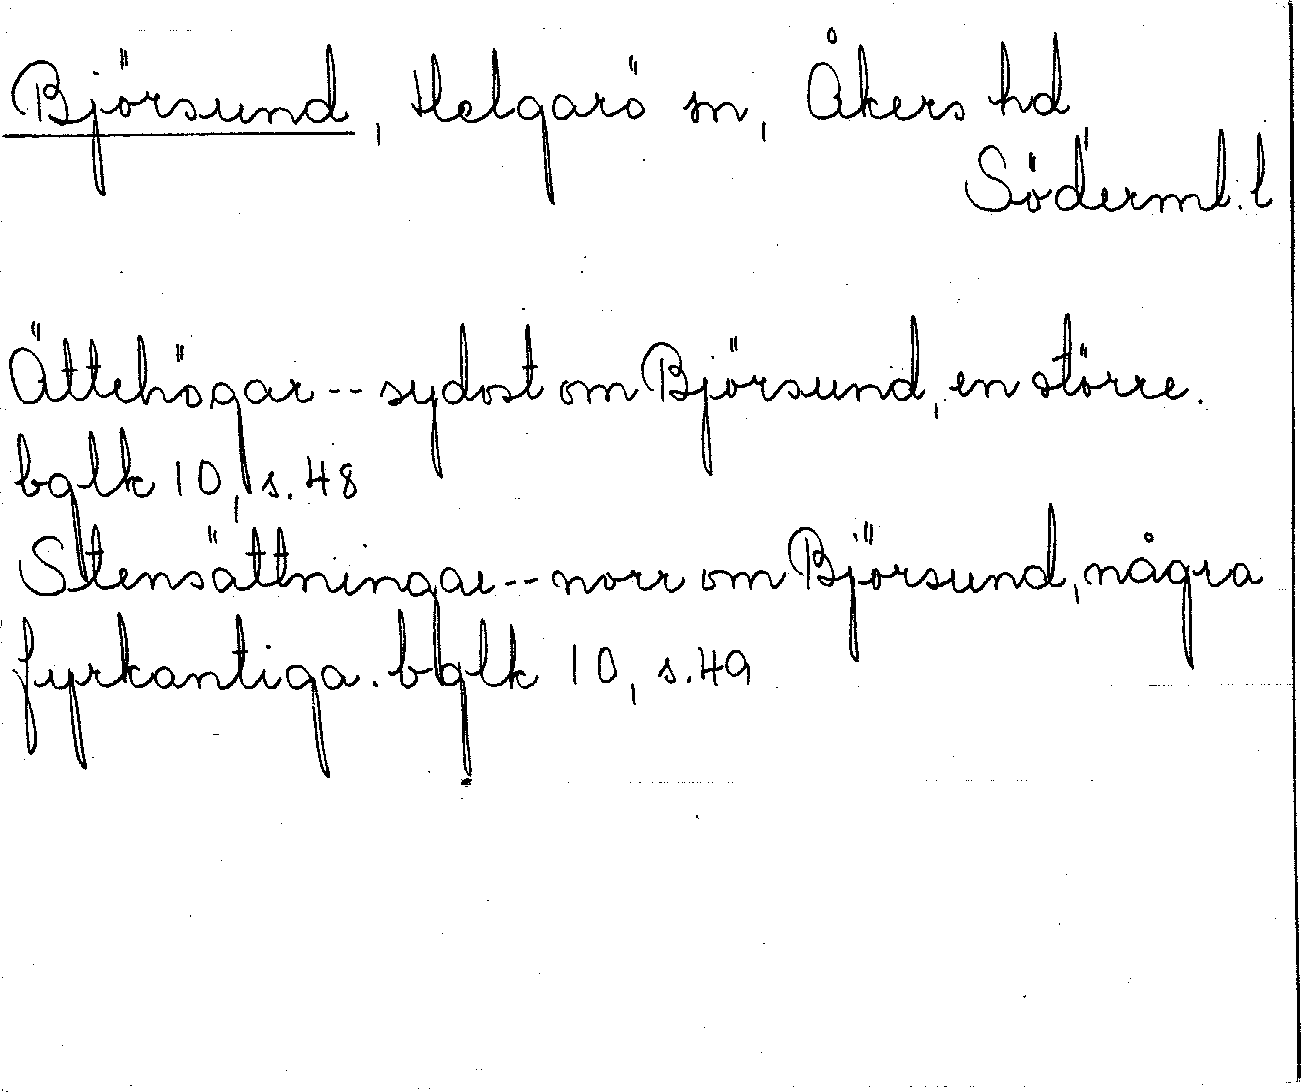 Björsund, Helgarö sn, Åkers hd
Söderml. l
Ättehögar -- sydost om Björsund, en större.
bglk 10, s. 48
Stensättningar -- norr om Björsund, några
fyrkantiga. bglk 10, s. 49